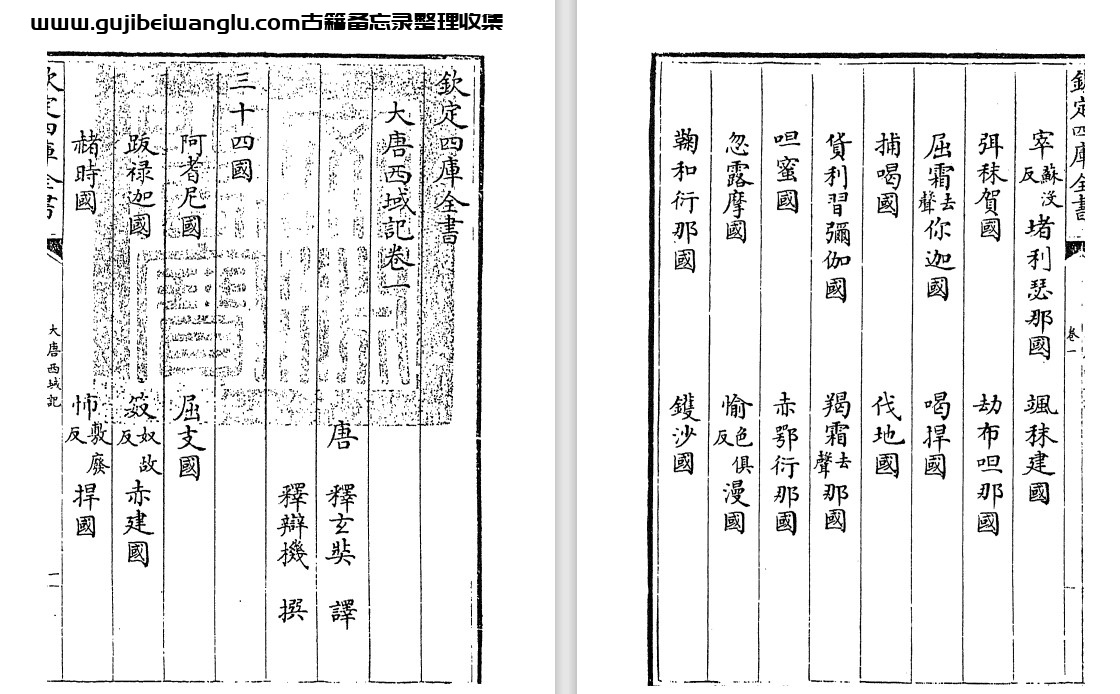 www.gujibeiwanglu.com古籍备忘录整理收集
欽定四庫全書
大唐西域記卷一
唐 釋玄奘 譯
釋辯機 撰
三十四國
阿耆尼國 屈支國
跋禄迦國 笯奴故反赤建國
赭時國 㤄敷廢反捍國
欽定四庫全書 大唐西域記
欽定四庫全書 卷一
窣蘇没反堵利瑟那國 颯秣建國
弭秣賀國 劫布呾那國
屈霜去聲你迦國 喝捍國
捕喝國 伐地國
貨利習彌伽國 羯霜去聲那國
呾蜜國 赤鄂衍那國
忽露摩國 愉色俱反漫國
鞠和衍那國 鑊沙國